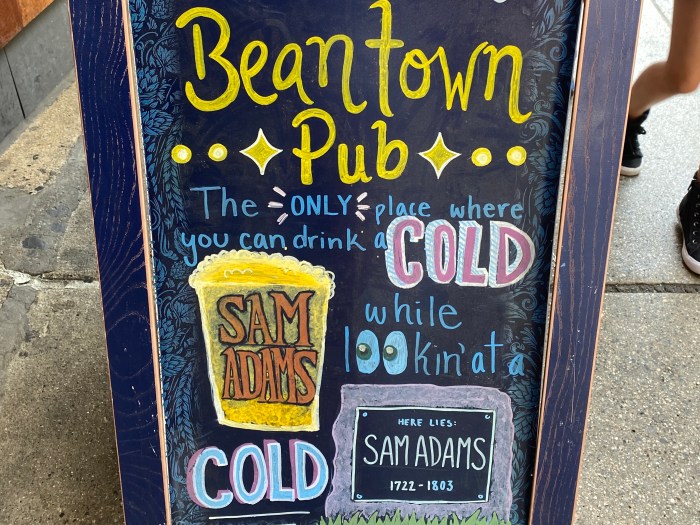 Beantown
Pub
The ONLY place where
you can drink a COLD
SAM
ADAMS
while
lookin' at a
COLD
HERE LIES:
SAM ADAMS
1722-1803